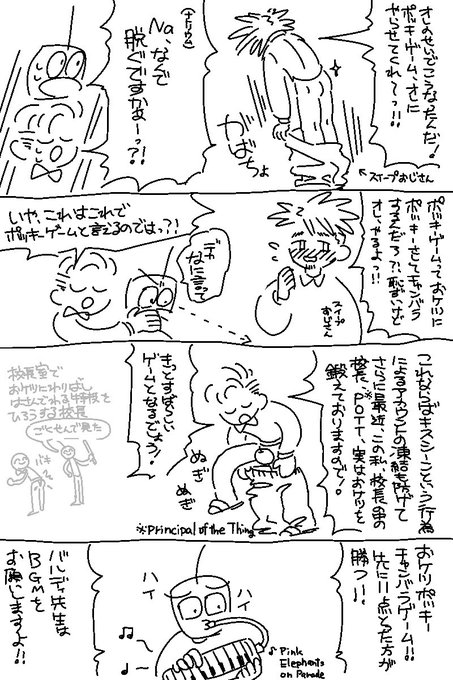 オレのせいでこうなったんだ!
ポッキーゲーム、オレに
やらせてくれ〜っ!!
←スイープおじさん
かばちょ
Na、なんで
(ナトリウム)
脱ぐですかぁーっ?!
ポッキーゲームっておケツに
ポッキーさしてチャンバラ
するんだろ?!、恥ずいけど
オレやるよっ!!
スイープ
おじさん
デカ
なに言って
いや、これはこれで
ポッキーゲームと言えるのではっ?!
これならばキスシーンという行為
によるアカウントの凍結も防げて
さらに最近、この私、校長の事の
校長、※POTT、実はおケツを
鍛えておりますので!
きっとすばらしい
ゲームとなるでしょう!
ぬぎ
ぬぎ
※Principal of the Thing
校長室で
おケツにわりばし
はさんでわる特技を
ひろうする校長
ごくせんで見た
バキ
おケツポッキー
チャンバラゲーム!!
先に11点とった方が
勝つ!!
ハイ
ハイ
♪ Pink
Elephants
on Parade
バルディ先生は
BGMを
お願いしますよ!!